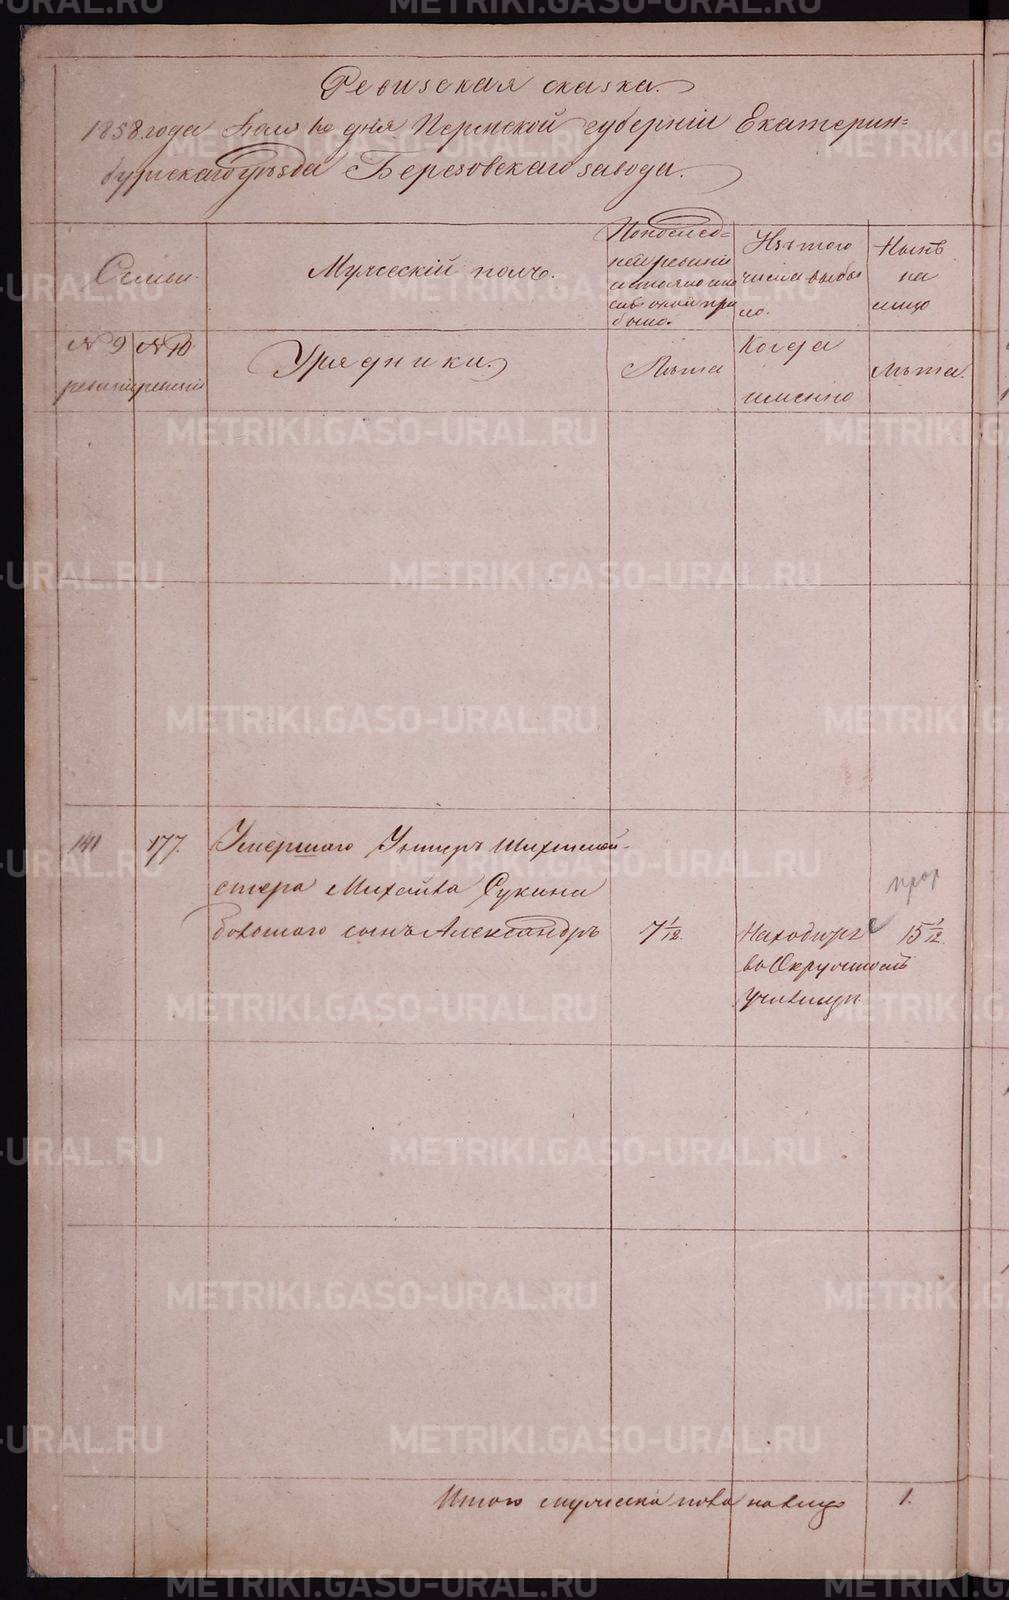 Ревизская сказка.
1858 года дня Пермской губерніи Екатерин=
бургскаго уѣзда Березовскаго завода.
Семьи.
Мужескій полъ.
По послѣд=
ней ревизіи
состояло или
послѣ оной при
было.
Изъ того
числа выбы
ло.
Нынѣ
на
лицо
№ 9 ревизіи
№ 10 ревизіи
Урядники.
Лѣта
Когда
именно
Лѣта.
141 177. Умершаго Унтеръ Шихтмей-
стера Михайла Сукина
сынъ Александръ 7 1/12. Находится 15 1/12.
въ Окружномъ
Училищѣ.
Итого мужеска пола на лицо 1.
METRIKI.GASO-URAL.RU